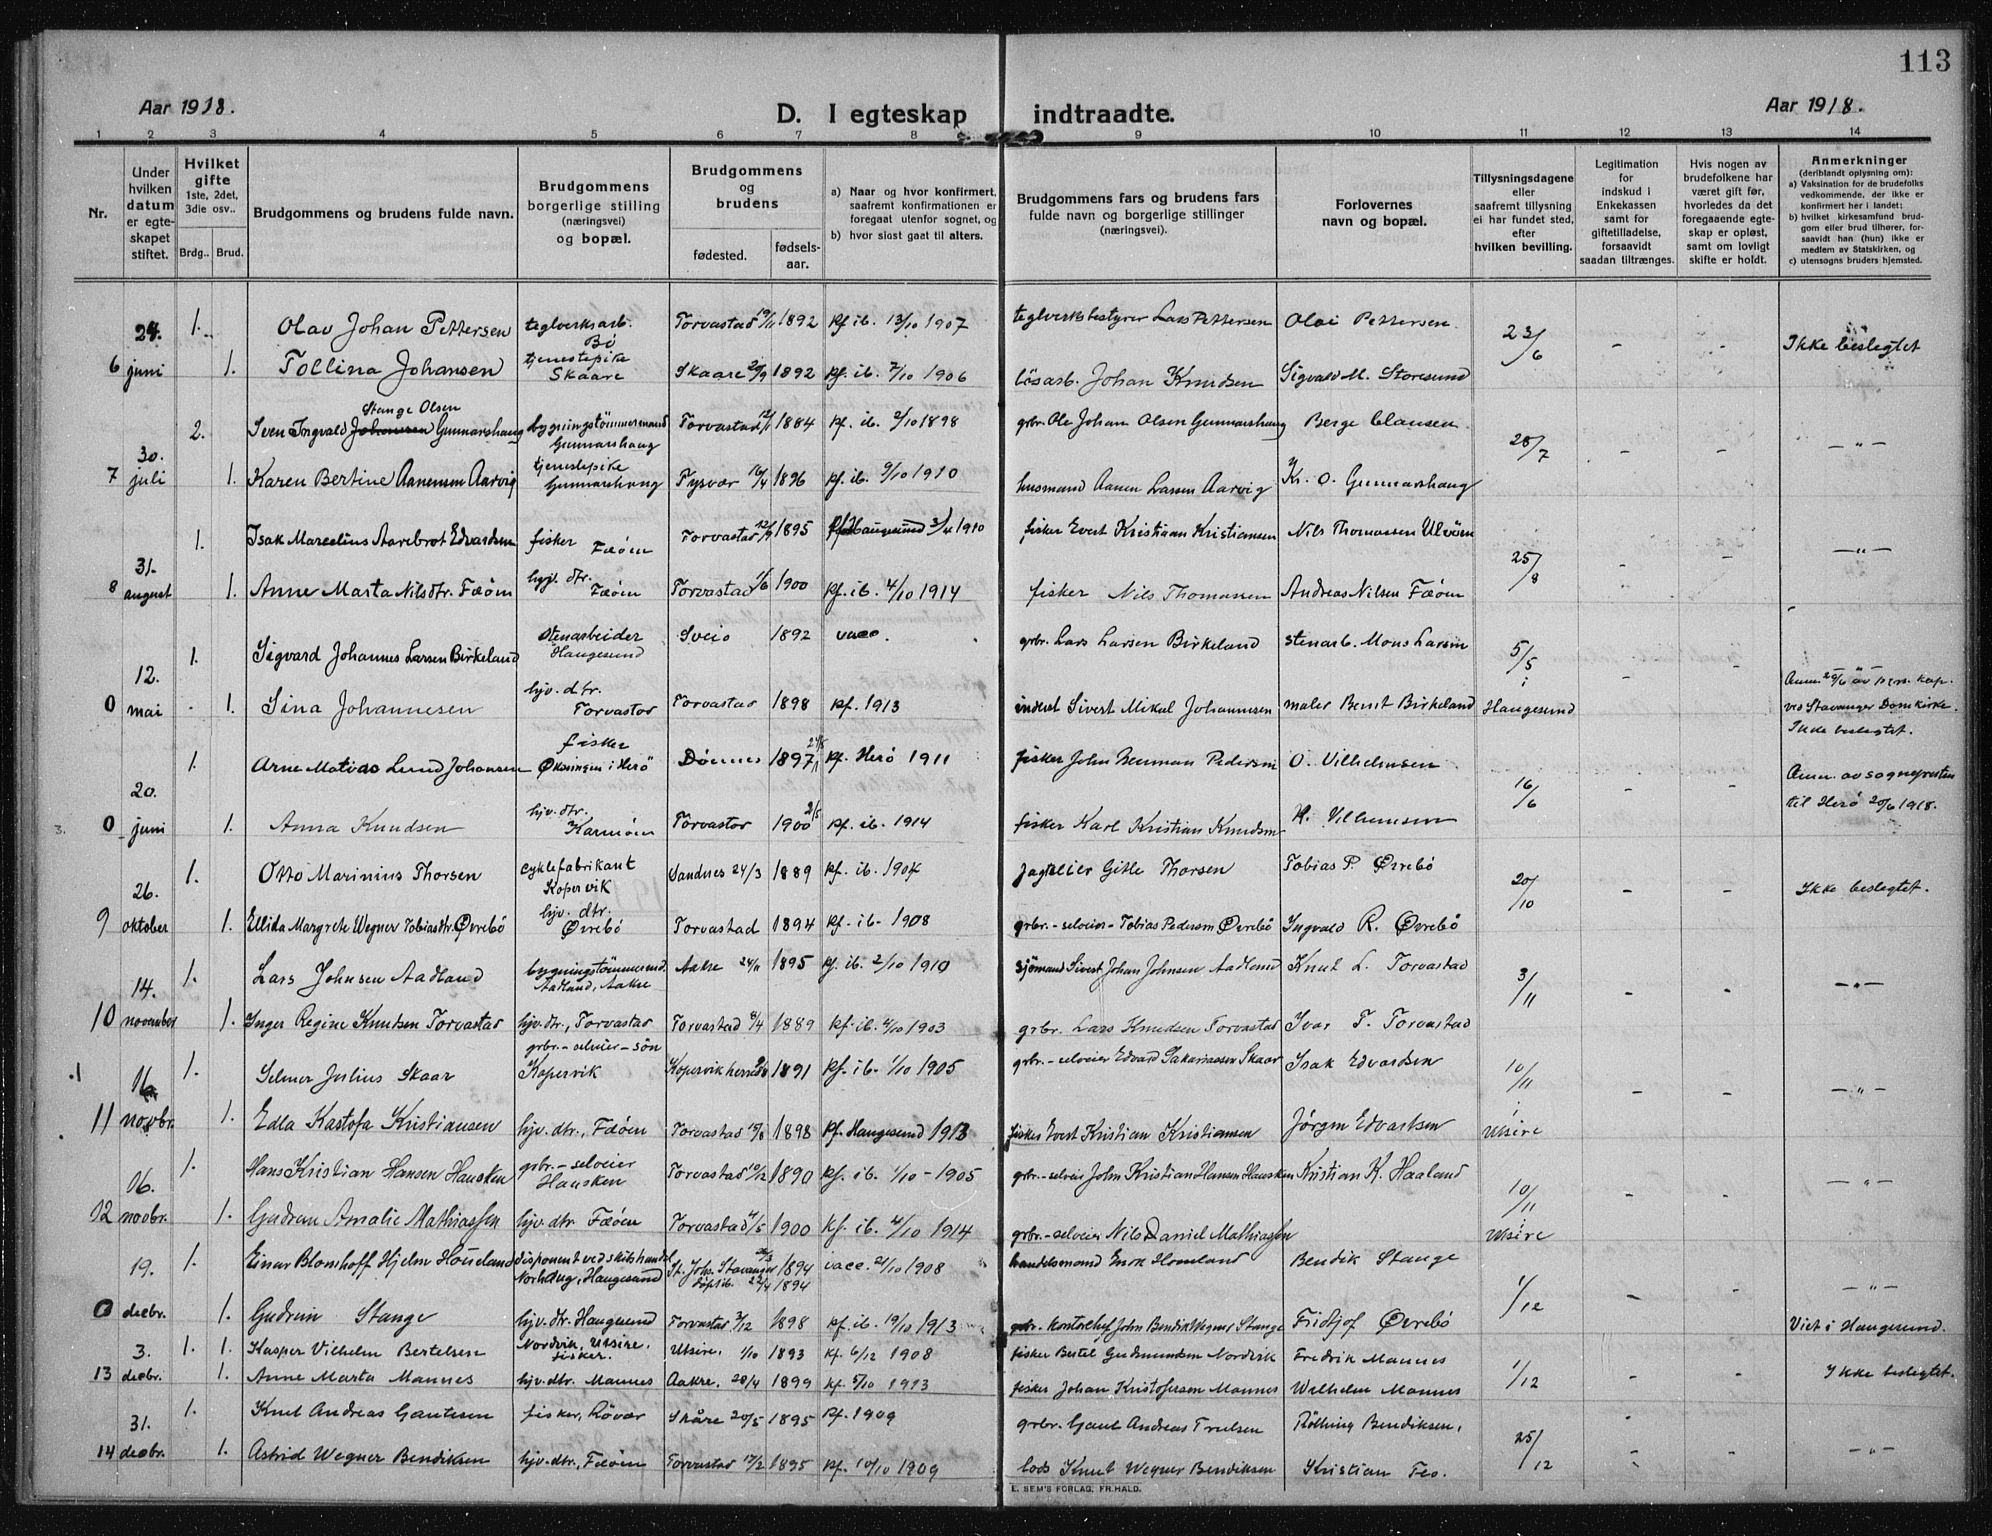 113
Aar 1918.
D. I egteskap indtraadte.
Aar 1918.
1 2 3 4 5 6 7 8 9 10 11 12 13 14
Nr.
Under hvilken datum er egteskapet stiftet.
Hvilket gifte 1ste, 2det, 3die osv..
Brdg.. Brud.
Brudgommens og brudens fulde navn.
Brudgommens borgerlige stilling (næringsvei) og bopæl.
Brudgommens og brudens
fødested.
fødselsaar.
a) Naar og hvor konfirmert, saafremt konfirmationen er foregaat utenfor sognet, og
b) hvor sidst gaat til alters.
Brudgommens fars og brudens fars fulde navn og borgerlige stillinger (næringsvei).
Forlovernes navn og bopæl.
Tillysningsdagene eller saafremt tillysning ei har fundet sted, efter hvilken bevilling.
Legitimation for indskud i Enkekassen samt for giftetilladelse, forsaavidt saadan tiltrænges.
Hvis nogen av brudefolkene har været gift før, hvorledes da det foregaaende egteskap er opløst, samt om lovligt skifte er holdt.
Anmerkninger (deriblandt oplysning om):
a) Vaksination for de brudefolks vedkommende, der ikke er konfirmert her i landet;
b) hvilket kirkesamfund brudgom eller brud tilhører, forsaavidt han (hun) ikke er medlem av Statskirken, og
c) utensogns bruders hjemsted.
24. 1. Olav Johan Pettersen teglverksarb. Bö Torvastad 19/11 1892 kf. ib. 13/10 1907 teglverksbestyrer Lars Pettersen Olai Pettersen 23/6 - - Ikke beslegtet
6 juni 1. Tollina Johansen tjenestepike Skaare Skaare 29/9 1892 kf. ib. 7/10 1906 lösarb. Johan Knudsen Sigvald M. Storesund
30. 2. Sven Ingvald Stange Olsen Gunnarshaug bygningstömmermand Gunnarshaug Torvastad 1884 kf. ib. 2/10 1898 grbr. Ole Johan Olsen Gunnarshaug Berge Clausen 28/7 - - -"-
7 juli 1. Karen Bertine Aanensen Aarvig tjenestepike Gunnarshaug Tysvær 16/4 1896 kf. ib. 9/10 1910 husmand Aanen Larsen Aarvig Kr. O. Gunnarshaug
31. 1. Isak Marcelius Aarebrot Edvardsen fisker Fæöen Torvastad 12/9 1895 Haugesund 3/4 1910 fisker Evert Kristian Kristiansen Nils Thomassen Ulvöen 25/8 - - -"-
8 august 1. Anne Marta Nilsdtr. Fæöen hjv. dtr. Fæöen Torvastad 1/6 1900 kf. ib. 4/10 1914 fisker Nils Thomassen Andreas Nilsen Fæöen
12. 1. Sigvard Johannes Larsen Birkeland Stenarbeider Haugesund Sveio 1892 vacc. grbr. Lars Larsen Birkeland stenarb. Mons Larsen 5/5 i - -
0 mai 1. Sina Johannesen hjv. dtr. Torvastad Torvastad 1898 kf. 1913 Sivert Mikal Johannesen maler Bernt Birkeland Haugesund Anm. 20/6 av pers. kap. ved Stavanger Domkirke. Ikke beslegtet.
20. 1. Arne Matias Lund Johansen fisker Öksningen i Herö Dönnes 1897 kf. Herö 1911 fisker John Neuman Pedersen O. Vilhelmsen 16/6 - - Anm. av sognepresten til Herö 20/6 1918.
0 juni 1. Anna Knudsen hjv. dtr. Karmöen Torvastad 2/5 1900 kf. ib. 1914 fisker Karl Kristian Knudsen K. Vilhelmsen
26. 1. Otto Marinius Thorsen Cyklefabrikant Kopervik Sandnes 24/3 1889 kf. ib. 1904 Jagteier Gitle Thorsen Tobias P. Övrebö 20/10 - - Ikke beslegtet.
9 oktober 1. Ellida Margrete Wegner Tobiasdtr. Övrebö hjv. dtr. Övrebö Torvastad 1894 kf. ib. 1908 grbr.-selveier-Tobias Pedersen Övrebö Ingvald R. Övrebö
14. 1. Lars Johnsen Aadland bygningstömmermd. Aadland, Aakre Aakre 24/11 1895 kf. ib. 2/10 1910 Sjömand Sivert Johan Johnsen Aadland Knut L. Torvastad 3/11 - - -"-
10 november 1. Inger Regine Knutsen Torvastad hjv. dtr., Torvastad Torvastad 8/4 1889 kf. ib. 4/10 1903 grbr. Lars Knudsen Torvastad Ivar T. Torvastad
16. 1. Selmer Julius Skaar grbr.-selveier-sön Kopervik Kopervik herred 1891 kf. ib. 1/10 1905 grbr.-selveier Edvard Sakariassen Skaar Isak Edvardsen 10/11 i - - -"-
11 novbr. 1. Edla Kastofa Kristiansen hjv. dtr., Fæöen Torvastad 1898 kf. Haugesund 1913 fisker Evert Kristian Kristiansen Jörgen Edvardsen Utsire
06. 1. Hans Kristian Hansen Hausken grbr.-selveier Hausken Torvastad 10/12 1890 kf. ib. 1/10-1905 grbr.-selveier John Kristian Hansen Hausken Kristian K. Haaland 10/11 i - - -"-
12 novbr. 1. Gudrun Amalie Mathiassen hjv. dtr Fæöen Torvastad 4/5 1900 kf. ib. 4/10 1914 grbr.-selveier Nils Daniel Mathiassen Utsire
19. 1. Einar Blomhoff Hjelm disponent ved skibshandel Haugesund St. Johs. Stavanger 1894 döpt ib. 22/4 1894 vacc. 21/10 1908 handelsmand Bendik Stange 1/12 - - -"-
0 decbr. 1. Gudrun Stange hjv. dtr. Haugesund Torvastad 3/12 1898 kf. ib. 19/10 1913 kontorchef John Bendik Wegner Stange Fridtjof Övrebö Viet i Haugesund.
3. 1. 1. Kasper Vilhelm Bertelsen Nordvik, Utsire, fisker. Utsire, 1/10 1893 kf. 6/12 1908 fisker Bertel Gudmundsen Nordvik Fredrik Mannes 1/12 - - Ikke beslegtet.
13 decbr. 1. Anne Marta Mannes hjv. dtr. Mannes Aakre. 28/4 1899 kf. 5/10 1913 fisker Johan Kristofersen Mannes Wilhelm Mannes
31. 1. Knut Andreas Gautesen fisker, Rövær Skåre 20/5 1895 kf. 1909 grbr. Gaut Andreas Trulsen Bendiksen, 25/12 - - -"-
14 decbr. 1. Astrid Wegner Bendiksen hjv. dtr., Fæöen Torvastad 17/2 1895 kf. 10/10 1909 lods Knut Wegner Bendiksen Kristian Feo.
E. SEM'S FORLAG, FR.HALD.